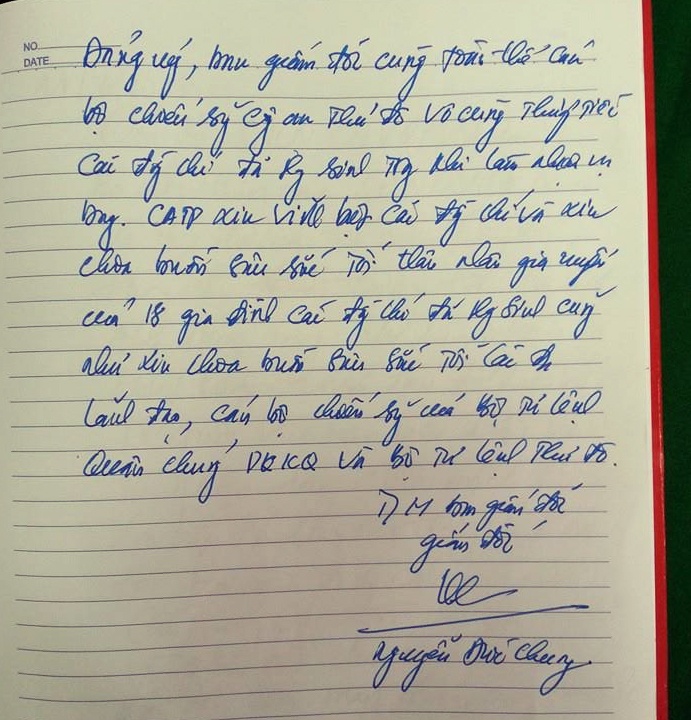 NO.
DATE
Đảng uỷ, ban giám đốc cùng toàn thể cán
bộ chiến sỹ Cg an Thủ đô vô cùng thương tiếc
Các đ/g chí đã hy sinh trg khi làm nhiệm vụ
bay. CATP xin vĩnh biệt các đ/g chí và xin
chia buồn sâu sắc tới thân nhân gia quyến
của 18 gia đình các đ/g chí đã hy sinh cũng
như xin chia buồn sâu sắc tới các đ/c
lãnh đạo, cán bộ chiến sỹ của Bộ Tư lệnh
Quân chủng PKKQ và Bộ Tư lệnh Thủ đô.
T/M ban giám đốc
giám đốc
Nguyễn Đức Chung